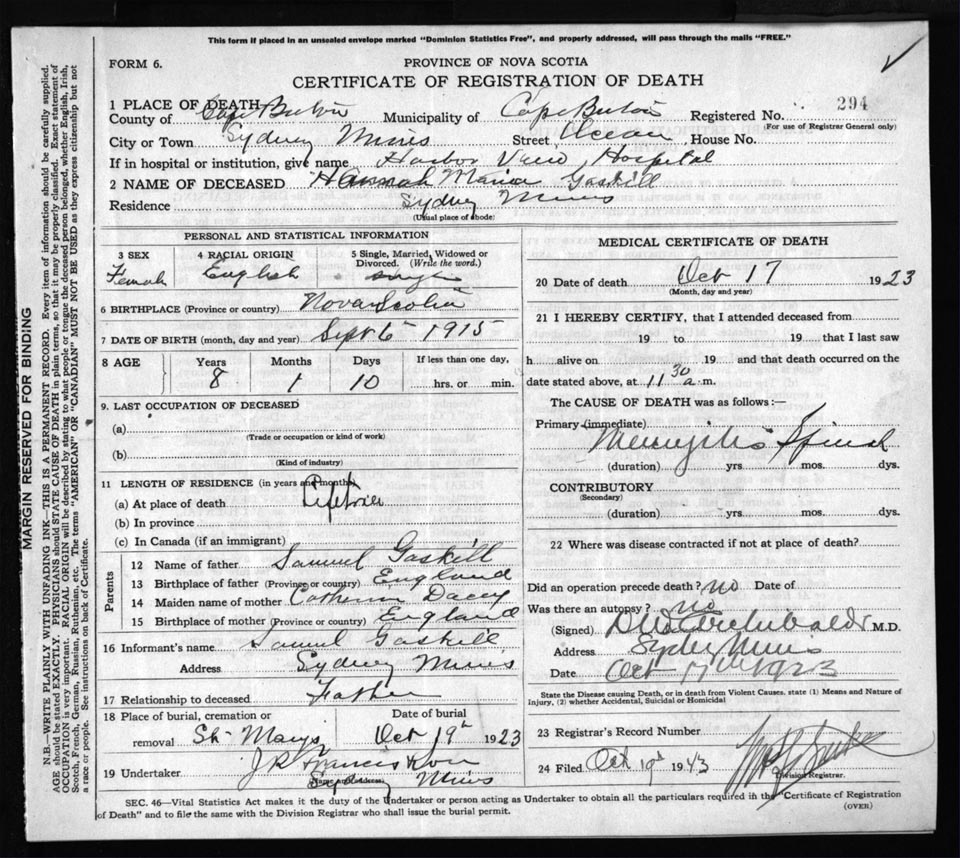 This form if placed in an unsealed envelope marked "Dominion Statistics Free", and properly addressed, will pass through the mails "FREE."
FORM 6.
PROVINCE OF NOVA SCOTIA
CERTIFICATE OF REGISTRATION OF DEATH
1 PLACE OF DEATH
294
County of Cape Breton Municipality of Cape Breton Registered No.
(For use of Registrar General only)
City or Town Sydney Mines Street Ocean, House No.
If in hospital or institution, give name Harbor View Hospital
2 NAME OF DECEASED Hannah Maria Gaskill
Residence Sydney Mines
(Usual place of abode)
PERSONAL AND STATISTICAL INFORMATION
3 SEX 4 RACIAL ORIGIN 5 Single, Married, Widowed or Divorced. (Write the word.)
Female English single
6 BIRTHPLACE (Province or country) Nova Scotia
7 DATE OF BIRTH (month, day and year) Sept 6 1915
8 AGE Years Months Days If less than one day,
8 1 10 hrs. or min.
9. LAST OCCUPATION OF DECEASED
(a)
(Trade or occupation or kind of work)
(b)
(Kind of industry)
11 LENGTH OF RESIDENCE (in years and months)
(a) At place of death Lifetime
(b) In province
(c) In Canada (if an immigrant)
Parents
12 Name of father Samuel Gaskill
13 Birthplace of father (Province or country) England
14 Maiden name of mother Catherine Dacey
15 Birthplace of mother (Province or country) England
16 Informant's name Samuel Gaskill
Address Sydney Mines
17 Relationship to deceased Father
18 Place of burial, cremation or Date of burial
removal St. Marys Oct 19th 1923
19 Undertaker J R Francis & Son
(Name and address) Sydney Mines
MEDICAL CERTIFICATE OF DEATH
20 Date of death Oct 17 1923
(Month, day and year)
21 I HEREBY CERTIFY, that I attended deceased from
19 to 19 that I last saw
h alive on 19 and that death occurred on the
date stated above, at 11 30 a.m.
The CAUSE OF DEATH was as follows:—
Primary (immediate)
Meningitis Spinal
(duration) yrs mos. dys.
CONTRIBUTORY
(Secondary)
(duration) yrs. mos. dys.
22 Where was disease contracted if not at place of death?
Did an operation precede death? no Date of
Was there an autopsy? no
(Signed) Archibald M.D.
Address Sydney Mines
Date Oct 17th 1923
State the Disease causing Death, or in death from Violent Causes, state (1) Means and Nature of
Injury, (2) whether Accidental, Suicidal or Homicidal
23 Registrar's Record Number
24 Filed Oct 19 1943
Division Registrar.
SEC. 46—Vital Statistics Act makes it the duty of the Undertaker or person acting as Undertaker to obtain all the particulars required in the "Certificate of Registration
of Death" and to file the same with the Division Registrar who shall issue the burial permit.
(OVER)
MARGIN RESERVED FOR BINDING
N.B.—WRITE PLAINLY WITH UNFADING INK—THIS IS A PERMANENT RECORD. Every item of information should be carefully supplied.
AGE should be stated EXACTLY. PHYSICIANS should STATE CAUSE OF DEATH in plain terms, so that it may be properly classified. Exact statement of
OCCUPATION is very important. RACIAL ORIGIN will be described by stating to what people or tongue the deceased person belonged, whether English, Irish,
Scotch, French, German, Russian, Ruthenian, etc. The terms "AMERICAN" OR "CANADIAN" MUST NOT BE USED as they express citizenship but not
a race or people. See instructions on back of Certificate.